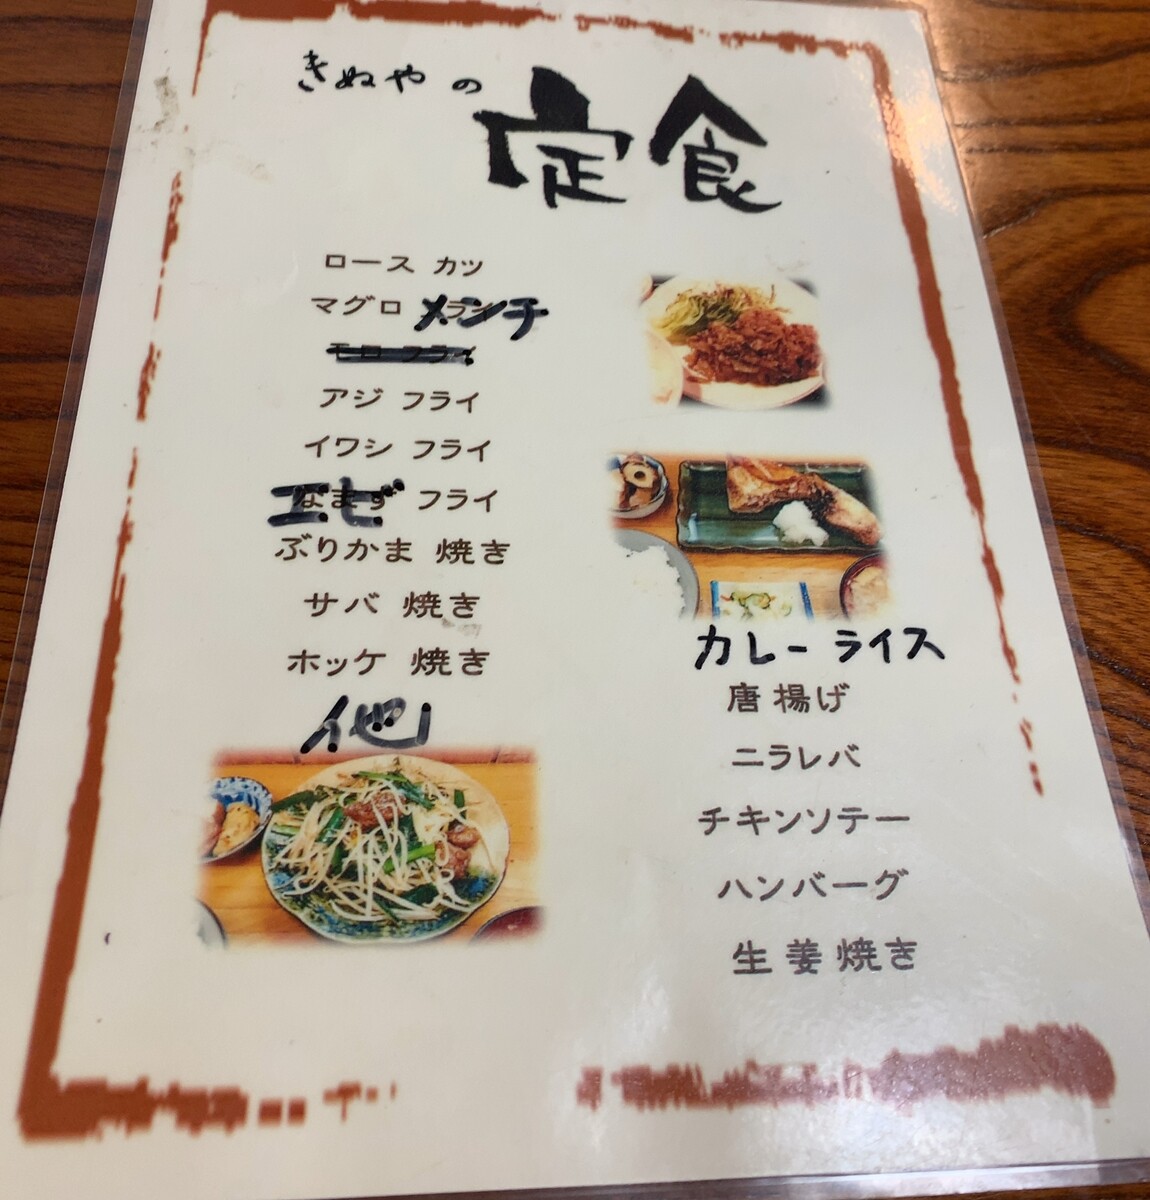 きぬやの
定食
ロース カツ
マグロ メンチ
モロ フライ
アジ フライ
イワシ フライ
エビ フライ
ぶりかま 焼き
サバ 焼き
ホッケ 焼き
他
カレーライス
唐揚げ
ニラレバ
チキンソテー
ハンバーグ
生姜焼き